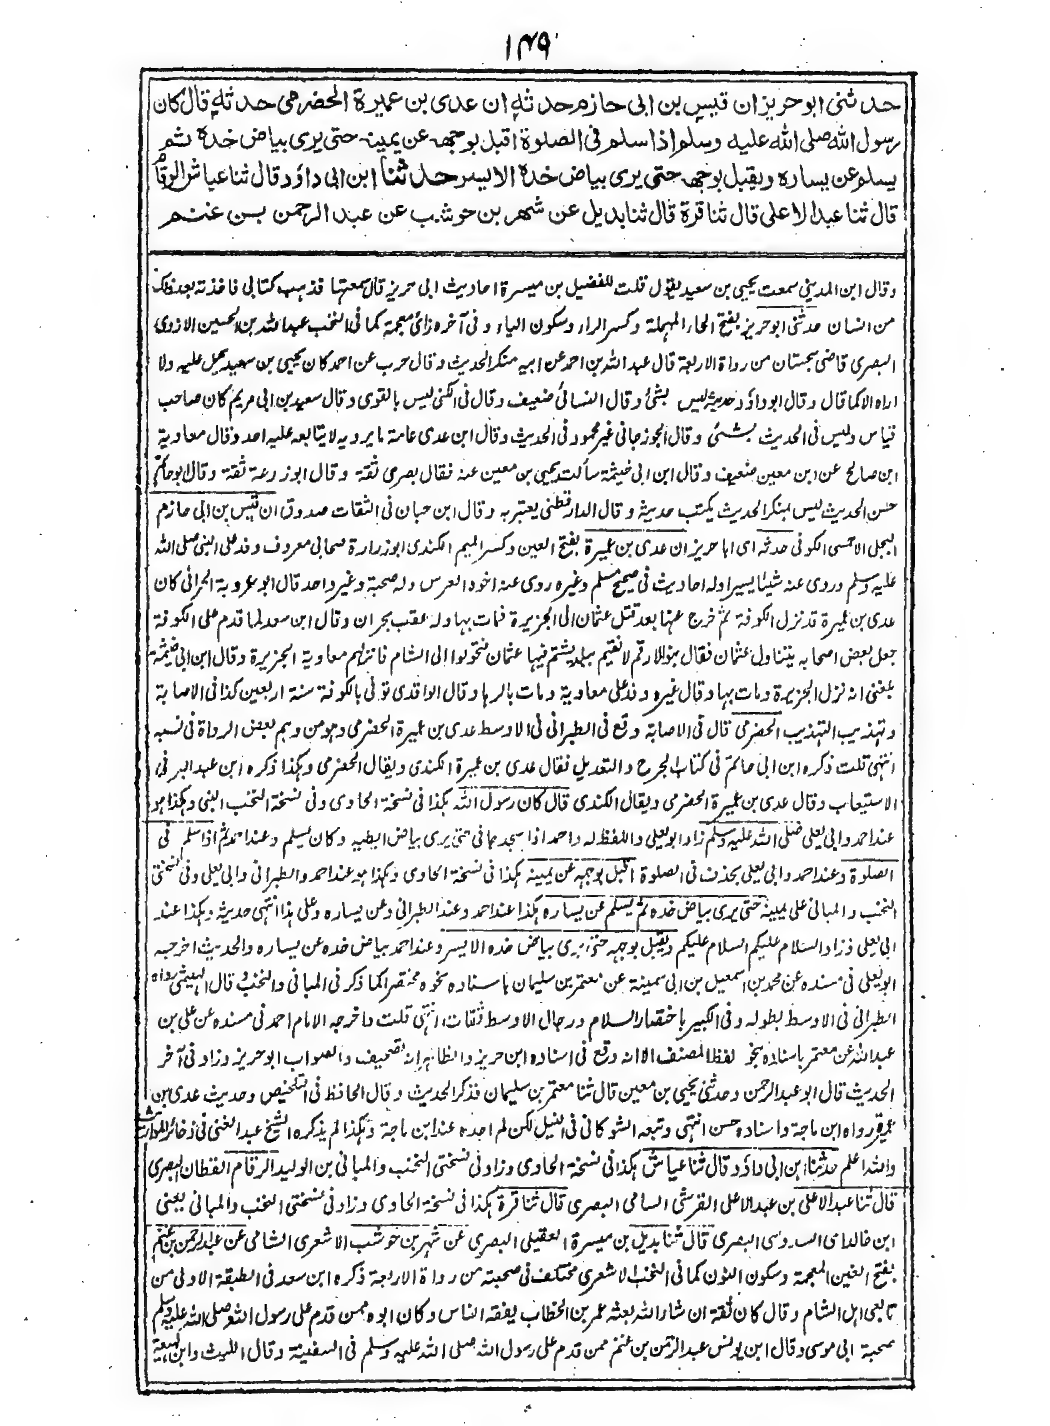 ١٤٩
حدثنى ابو حريز ان قيس بن ابى حازم حدثه ان عدى بن عميرة الحضرمى حدثه قال كان
رسول الله صلى الله عليه وسلم اذا سلم فى الصلوة اقبل بوجهه عن يمينه حتى يرى بياض خده ثم
يسلم عن يساره ويقبل بوجهه حتى يرى بياض خده الايسر حدثنا ابن ابى داؤد قال ثنا عياش الرقام
قال ثنا عبد الاعلى قال ثنا قرة قال ثنا بديل عن شهر بن حوشب عن عبد الرحمن بن غنم
وقال ابن المدينى سمعت يحيى بن سعيد يقول قلت للفضيل بن ميسرة احاديث ابى حريز قال سمعتها فذهب كتابى فاخذته بعد ذلك
من انسان حدثنى ابو حريز بفتح الحاء المهملة وكسر الراء وسكون الياء وفى آخره زائ معجمة كما فى النخب عبد الله بن الحسين الازدى
البصرى قاضى سجستان من رواة الاربعة قال عبد الله بن احمد عن ابيه منكر الحديث وقال حرب عن احمد كان يحيى بن سعيد يحمل عليه ولا
اراه الا كما قال وقال ابو داؤد حديثه ليس بشئ وقال النسائى ضعيف وقال فى الكنى ليس بالقوى وقال سعيد بن ابى مريم كان صاحب
قياس وليس فى الحديث بشئ وقال الجوزجانى غير محمود فى الحديث وقال ابن عدى عامة ما يرويه لا يتابعه عليه احد وقال معاوية
ابن صالح عن ابن معين ضعيف وقال ابن ابى خيثمة سألت يحيى بن معين عنه فقال بصرى ثقة وقال ابو زرعة ثقة وقال ابو حاتم
حسن الحديث ليس بمنكر الحديث يكتب حديثه وقال الدارقطنى يعتبر به وقال ابن حبان فى الثقات صدوق ان قيس بن ابى حازم
البجلى الاحمسى الكوفى حدثه اى ابا حريز ان عدى بن عميرة بفتح العين وكسر الميم الكندى ابو زرارة صحابى معروف وفد على النبى صلى الله
عليه وسلم وروى عنه شيئا يسيرا وله احاديث فى صحيح مسلم وغيره روى عنه اخوه العرس وله صحبة وغير واحد قال ابو عروبة الحرانى كان
عدى بن عميرة قد نزل الكوفة ثم خرج عنها بعد قتل عثمان الى الجزيرة فمات بها وله عقب بحران وقال ابن سعد لما قدم على الكوفة
جعل بعض اصحابه يتناول عثمان فقال بنو الارقم لا نقيم ببلد يشتم فيها عثمان فتحولوا الى الشام فانزلهم معاوية الجزيرة وقال ابن ابى خيثمة
بلغنى انه نزل الجزيرة ومات بها وقال غيره وفد على معاوية ومات بالرها وقال الواقدى توفى بالكوفة سنة اربعين كذا فى الاصابة
وتهذيب التهذيب الحضرمى قال فى الاصابة وقع فى الطبرانى فى الاوسط عدى بن عميرة الحضرمى وهو من وهم بعض الرواة فى نسبه
انتهى قلت ذكره ابن ابى حاتم فى كتاب الجرح والتعديل فقال عدى بن عميرة الكندى ويقال الحضرمى وكذا ذكره ابن عبد البر فى
الاستيعاب وقال عدى بن عميرة الحضرمى ويقال الكندى قال كان رسول الله كذا فى نسخة الحاوى وفى نسخة النخب النبى وكذا هو
عند احمد وابى يعلى صلى الله عليه وسلم زاد ابو يعلى واللفظ له واحمد اذا سجد جافى حتى يرى بياض ابطيه وكان يسلم وعند احمد ثم اذا سلم فى
الصلوة وعند احمد وابى يعلى بحذف فى الصلوة اقبل بوجهه عن يمينه كذا فى نسخة الحاوى وكذا هو عند احمد والطبرانى وابى يعلى وفى نسختى
النخب والمبانى على يمينه حتى يرى بياض خده ثم يسلم عن يساره كذا عند احمد وعند الطبرانى وعن يساره وعلى هذا انتهى حديثه وكذا عند
ابى يعلى وزاد السلام عليكم السلام عليكم ويقبل بوجهه حتى يرى بياض خده الايسر وعند احمد بياض خده عن يساره والحديث اخرجه
ابو يعلى فى مسنده عن محمد بن اسمعيل بن ابى سمينة عن معتمر بن سليمان باسناده نحوه مختصرا كما ذكر فى المبانى والنخب وقال الهيثمى رواه
الطبرانى فى الاوسط بطوله وفى الكبير باختصار السلام ورجال الاوسط ثقات انتهى قلت واخرجه الامام احمد فى مسنده عن على بن
عبد الله عن معتمر باسناده بنحو لفظ المصنف الا انه وقع فى اسناده ابن حريز والظاهر انه تصحيف والصواب ابو حريز وزاد فى آخر
الحديث قال ابو عبد الرحمن وحدثنى يحيى بن معين قال ثنا معتمر بن سليمان فذكر الحديث وقال الحافظ فى التلخيص وحديث عدى بن
عميرة رواه ابن ماجة واسناده حسن انتهى وتبعه الشوكانى فى النيل لكن لم اجده عند ابن ماجة وكذا لم يذكره الشيخ عبد الغنى فى ذخائر المواريث
والله اعلم حدثنا ابن ابى داؤد قال ثنا عياش كذا فى نسخة الحاوى وزاد فى نسختى النخب والمبانى بن الوليد الرقام القطان البصرى
قال ثنا عبد الاعلى بن عبد الاعلى القرشى السامى البصرى قال ثنا قرة كذا فى نسخة الحاوى وزاد فى نسختى النخب والمبانى يعنى
ابن خالد اى السدوسى البصرى قال ثنا بديل بن ميسرة العقيلى البصرى عن شهر بن حوشب الاشعرى الشامى عن عبد الرحمن بن غنم
بفتح الغين المعجمة وسكون النون كما فى النخب الاشعرى مختلف فى صحبته من رواة الاربعة ذكره ابن سعد فى الطبقة الاولى من
تابعى اهل الشام وقال كان ثقة ان شاء الله بعثه عمر بن الخطاب يفقه الناس وكان ابوه ممن قدم على رسول الله صلى الله عليه وسلم
صحبة ابى موسى وقال ابن يونس عبد الرحمن بن غنم ممن قدم على رسول الله صلى الله عليه وسلم فى السفينة وقال الليث وابن لهيعة